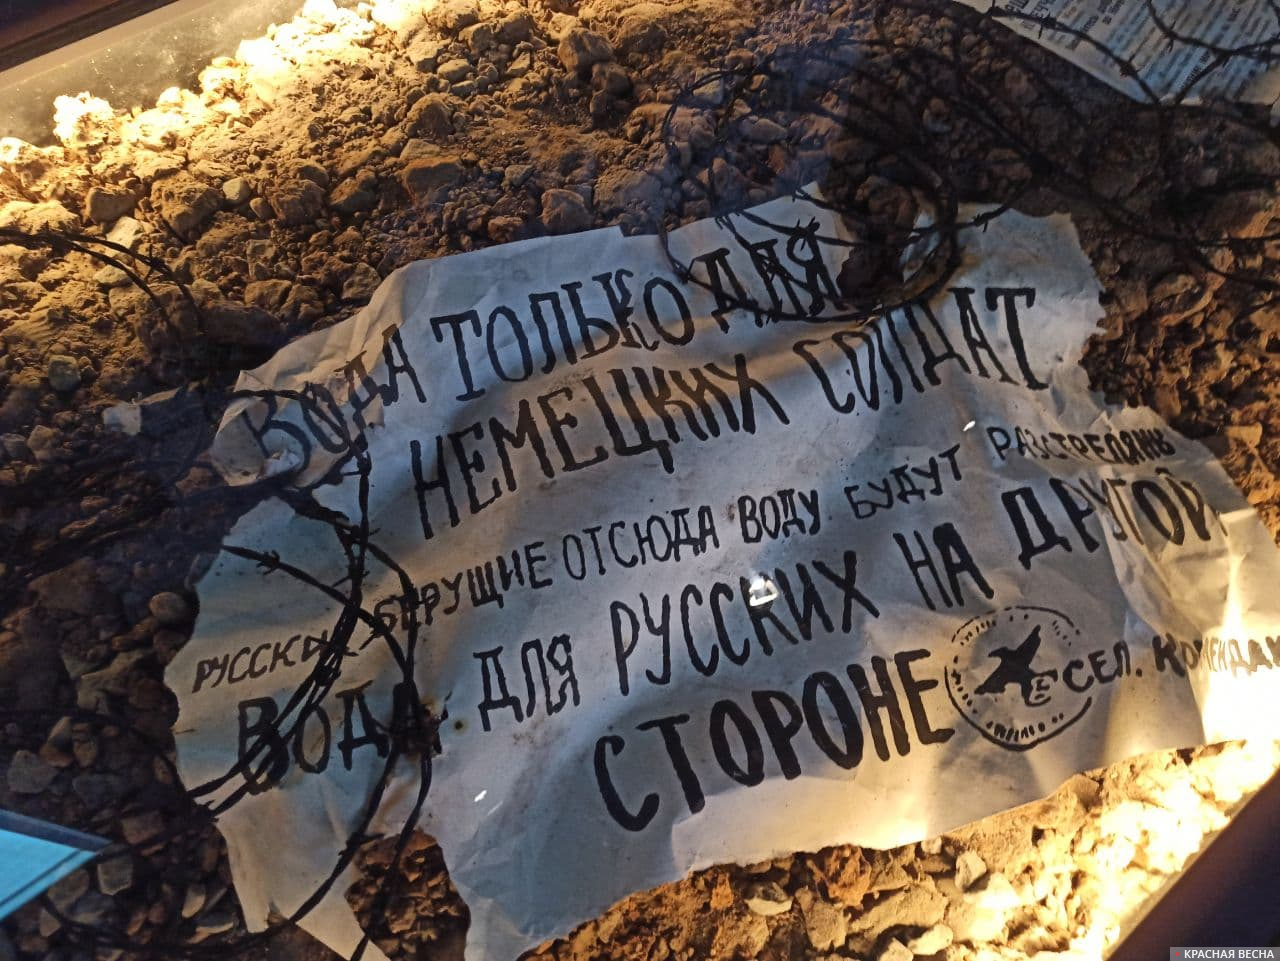 ВОДА ТОЛЬКО ДЛЯ
НЕМЕЦКИХ СОЛДАТ
РУССКИХ БЕРУЩИЕ ОТСЮДА ВОДУ БУДУТ РАЗСТРЕЛЯНЫ
ВОДА ДЛЯ РУССКИХ НА ДРУГОЙ
СТОРОНЕ
СЕЛ. КОМЕНДАН
КРАСНАЯ ВЕСНА